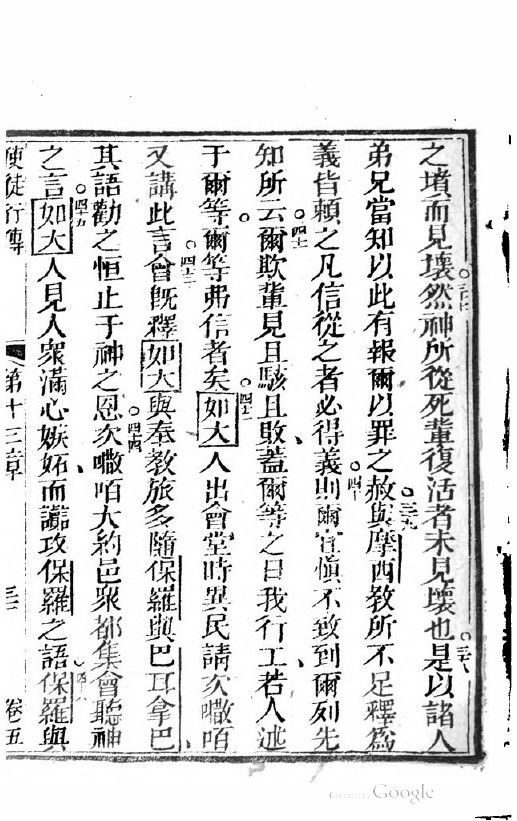 之墳而見壞三十七然神所從死輩復活者未見壞也三十八是以諸人
弟兄當知以此有報爾以罪之赦三十九與摩西教所不足釋為
義皆賴之凡信從之者必得義四十則爾宜慎不致到爾列先
知所云四十一爾欺輩見且駭且敗蓋爾等之日我行工若人述
于爾等爾等弗信者矣四十二如大人出會堂時異民請次囋咟
又講此言四十三會旣釋如大與奉教旅多隨保羅與巴耳拿巴
其語勸之恒止于神之恩四十四次囋咟大約邑眾都集會聽神
之言四十五如大人見人眾滿心嫉妬而讟攻保羅之語四十六保羅與
使徒行傳 第十三章 三二 卷五
Digitized by Google